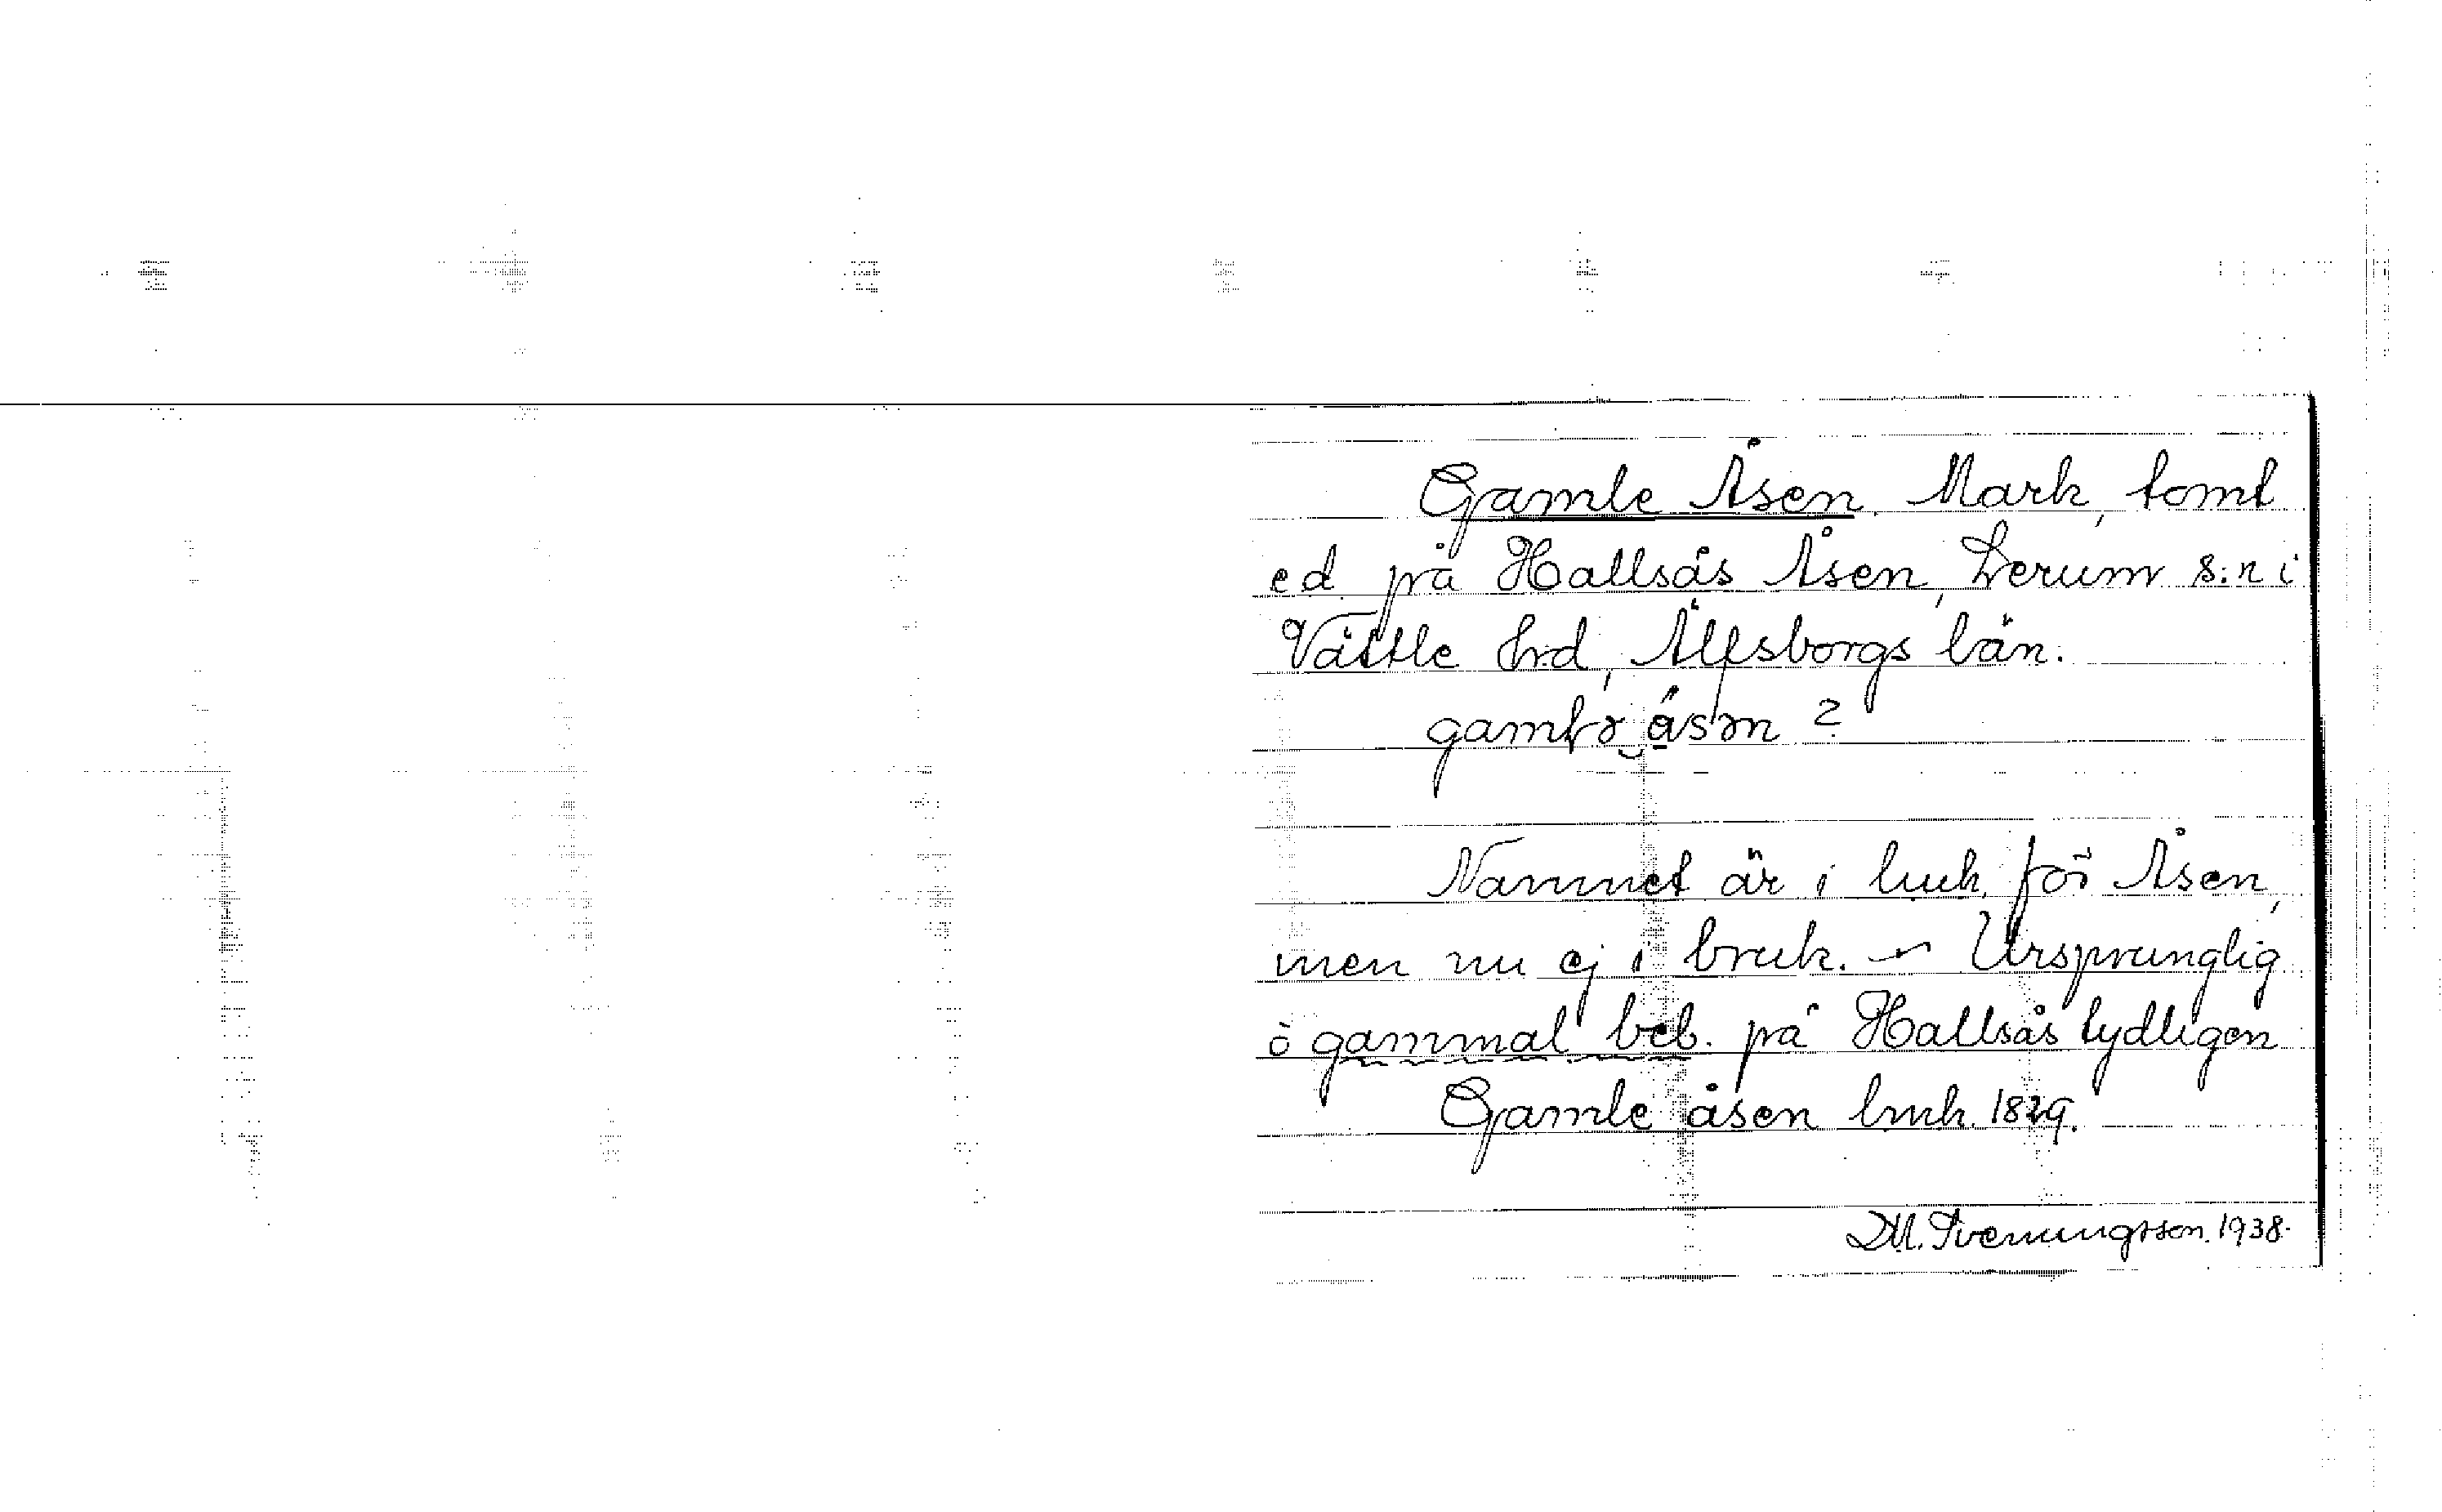 Gamle Åsen. Mark, tomt
ed. på Hallsås Åsen, Lerum s:n i
Vättle hrd, Älfsborgs län.
gamlə åsən ?
Namnet är i luk. för Åsen,
men nu ej i bruk. – Ursprunglig
o gammal beb. på Hallsås tydligen
Gamle åsen luk. 1829.
D.M. Svenungsson. 1938.